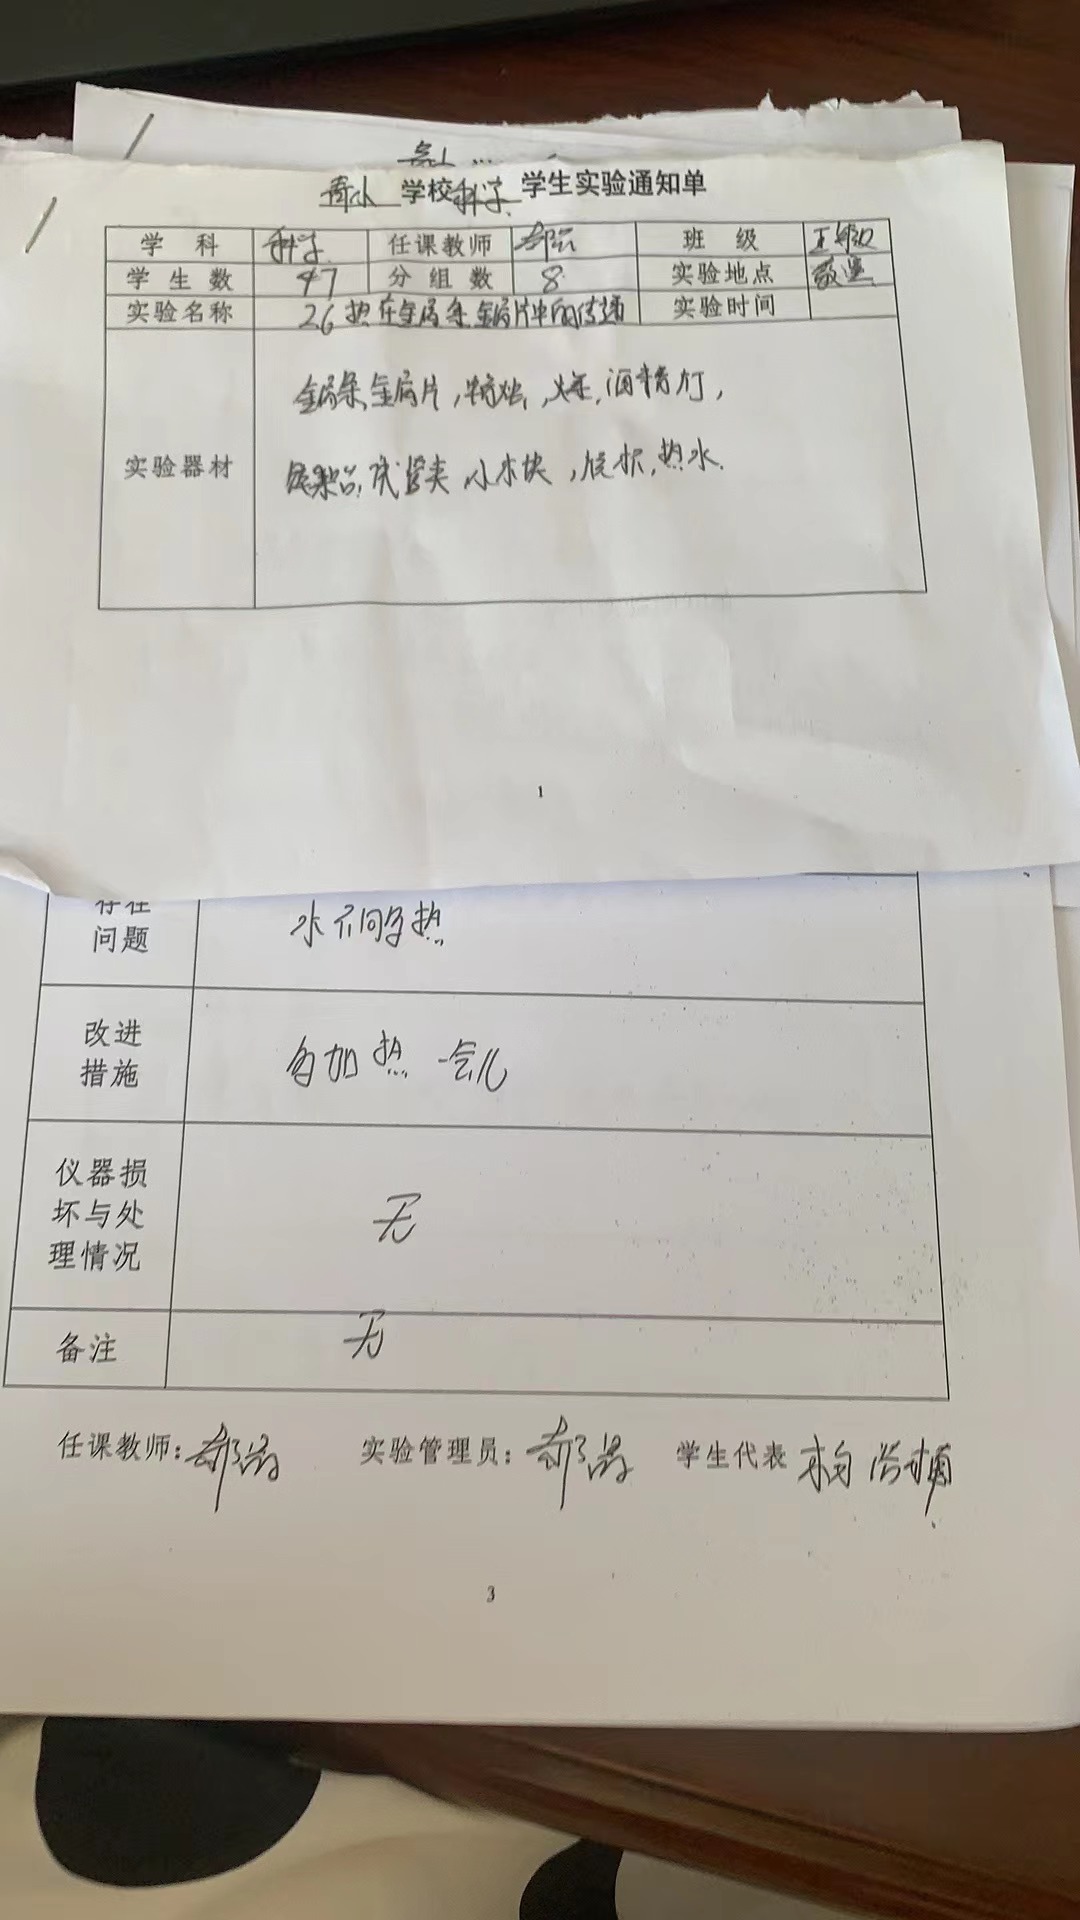 学校科学 学生实验通知单
学科 科学 任课教师 班级
学生数 47 分组数 8 实验地点 教室
实验名称 26热在金属条、金属片中的传递 实验时间
实验器材
金属条,金属片,蜡烛,火柴,酒精灯,
铁架台,试管夹,小木块,烧杯,热水.
1
存在
问题
水不同导热
改进
措施
多加热一会儿
仪器损
坏与处
理情况
无
备注
无
任课教师: 实验管理员: 学生代表
3